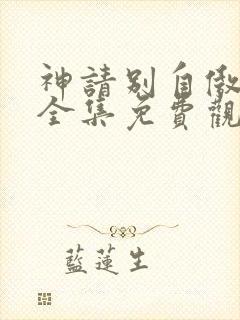 神請別自傲
全集免費觀
藍蓮生